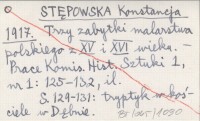 STĘPOWSKA Konstancja
1917. Trzy zabytki malarstwa
polskiego z XV i XVI wieku. —
Prace Komis. Hist. Sztuki 1,
nr 1: 125-132, il.
S. 129-131: tryptyk w koś-
ciele w Dębnie.